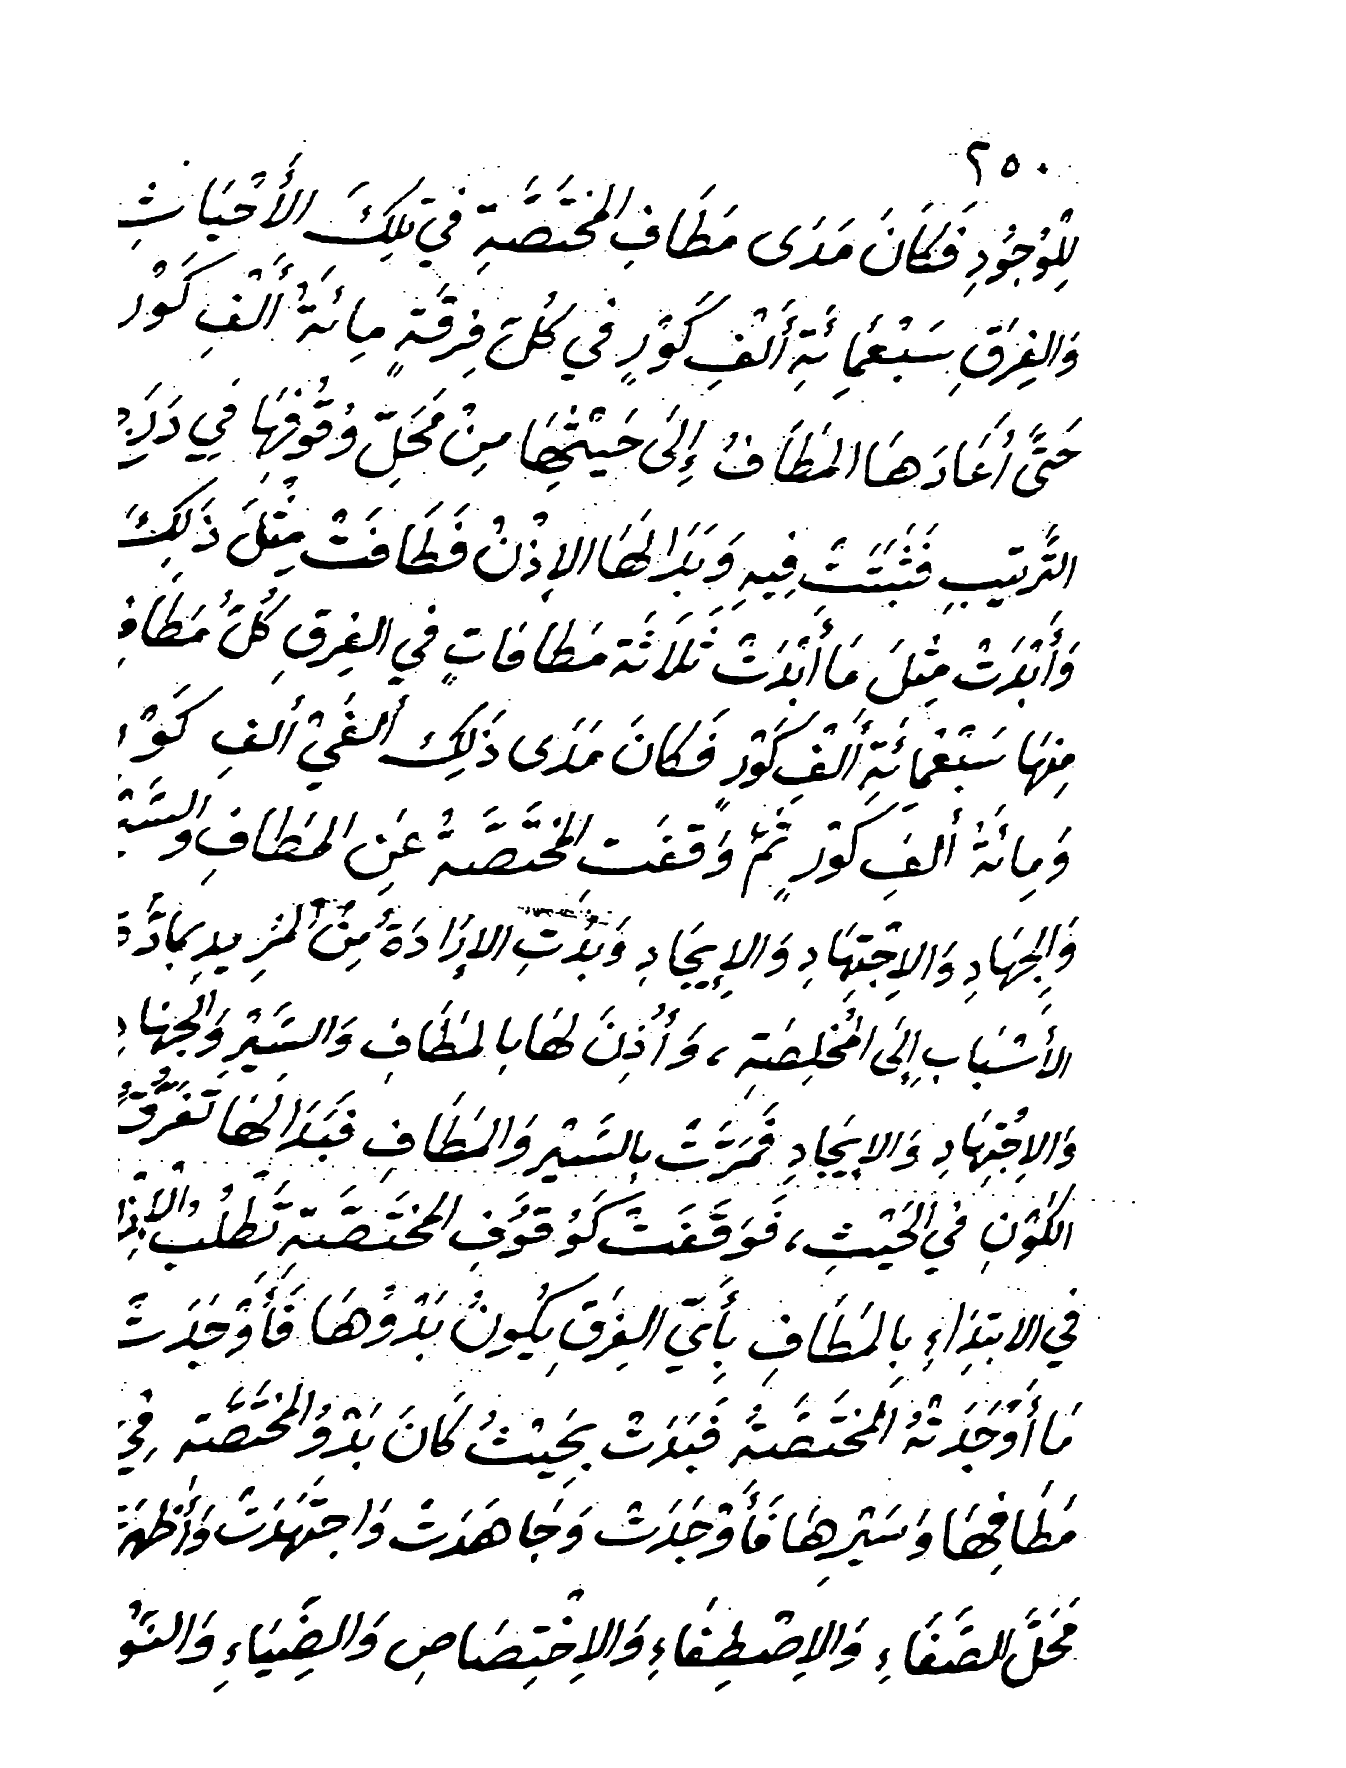 ٢٥٠
لِلْوُجُودِ فَكَانَ مَدَى مَطَافِ المُخْتَصَّةِ فِي تِلْكَ الأَحْيَاثِ
وَالفِرَقِ سَبْعَمِائَةِ أَلْفِ كَوْرٍ فِي كُلِّ فِرْقَةٍ مِائَةُ أَلْفِ كَوْر
حَتَّى أَعَادَهَا المَطَافُ إِلَى حَيْثِهَا مِنْ مَحَلِّ وُقُوفِهَا فِي
التَّرْتِيبِ فَثَبَتَتْ فِيهِ وَبَدَا لَهَا الإِذْنُ فَطَافَتْ مِثْلَ ذَلِكَ
وَأَبْدَتْ مِثْلَ مَا أَبْدَتْ ثَلَاثَة مَطَافَاتٍ فِي الفِرَقِ كُلُّ مَطَافٍ
مِنهَا سَبْعُمَائَةِ أَلْفِ كَوْرٍ فَكَانَ مَدَى ذَلِكَ أَلفَيْ أَلفِ كَوْر
وَمِائَةُ أَلفِ كَوْرٍ ثُمَّ وَقَفَت المُخْتَصَّةُ عَنِ المَطَافِ
وَالجِهَادِ وَالاِجْتِهَادِ وَالإِيجَادِ وَبَدَتِ الإِرَادَةُ مِنَ المَزِيدِ بِمَادَّة
الأَسْبَابِ إِلَى المُخْلِصَةِ، وَأُذِنَ لَهَا بِالمَطَافِ وَالسَّيْرِ وَالجِهَادِ
وَالاِجْتِهَادِ وَالإِيجَادِ فَمَرَّتْ بِالسَّيْرِ وَالمَطَافِ فَبَدَا لَهَا تَفَرُّقُ
الكَوْنِ فِي الحَيْثِ، فَوَقَفَتْ كَوُقُوفِ المُخْتَصَّةِ تَطْلُبُ
فِي الابْتِدَاءِ بِالمَطَافِ بِأَيِّ الفِرَقِ يَكُونُ بَدْؤُهَا فَأَوْجَدَتْ
مَا أَوْجَدَتْهُ المُخْتَصَّةُ فَبَدَتْ بِحَيْثُ كَانَ بَدْوُ المُخْتَصَّةِ فِي
مَطَافِهَا وَسَيْرِهَا فَأَوْجَدَتْ وَجَاهَدَتْ وَاجتَهَدَتْ وَأَظهَرَت
مَحَلَّ الصَّفَاءِ وَالاِصْطِفَاءِ وَالاِخْتِصَاصِ وَالضِّيَاءِ